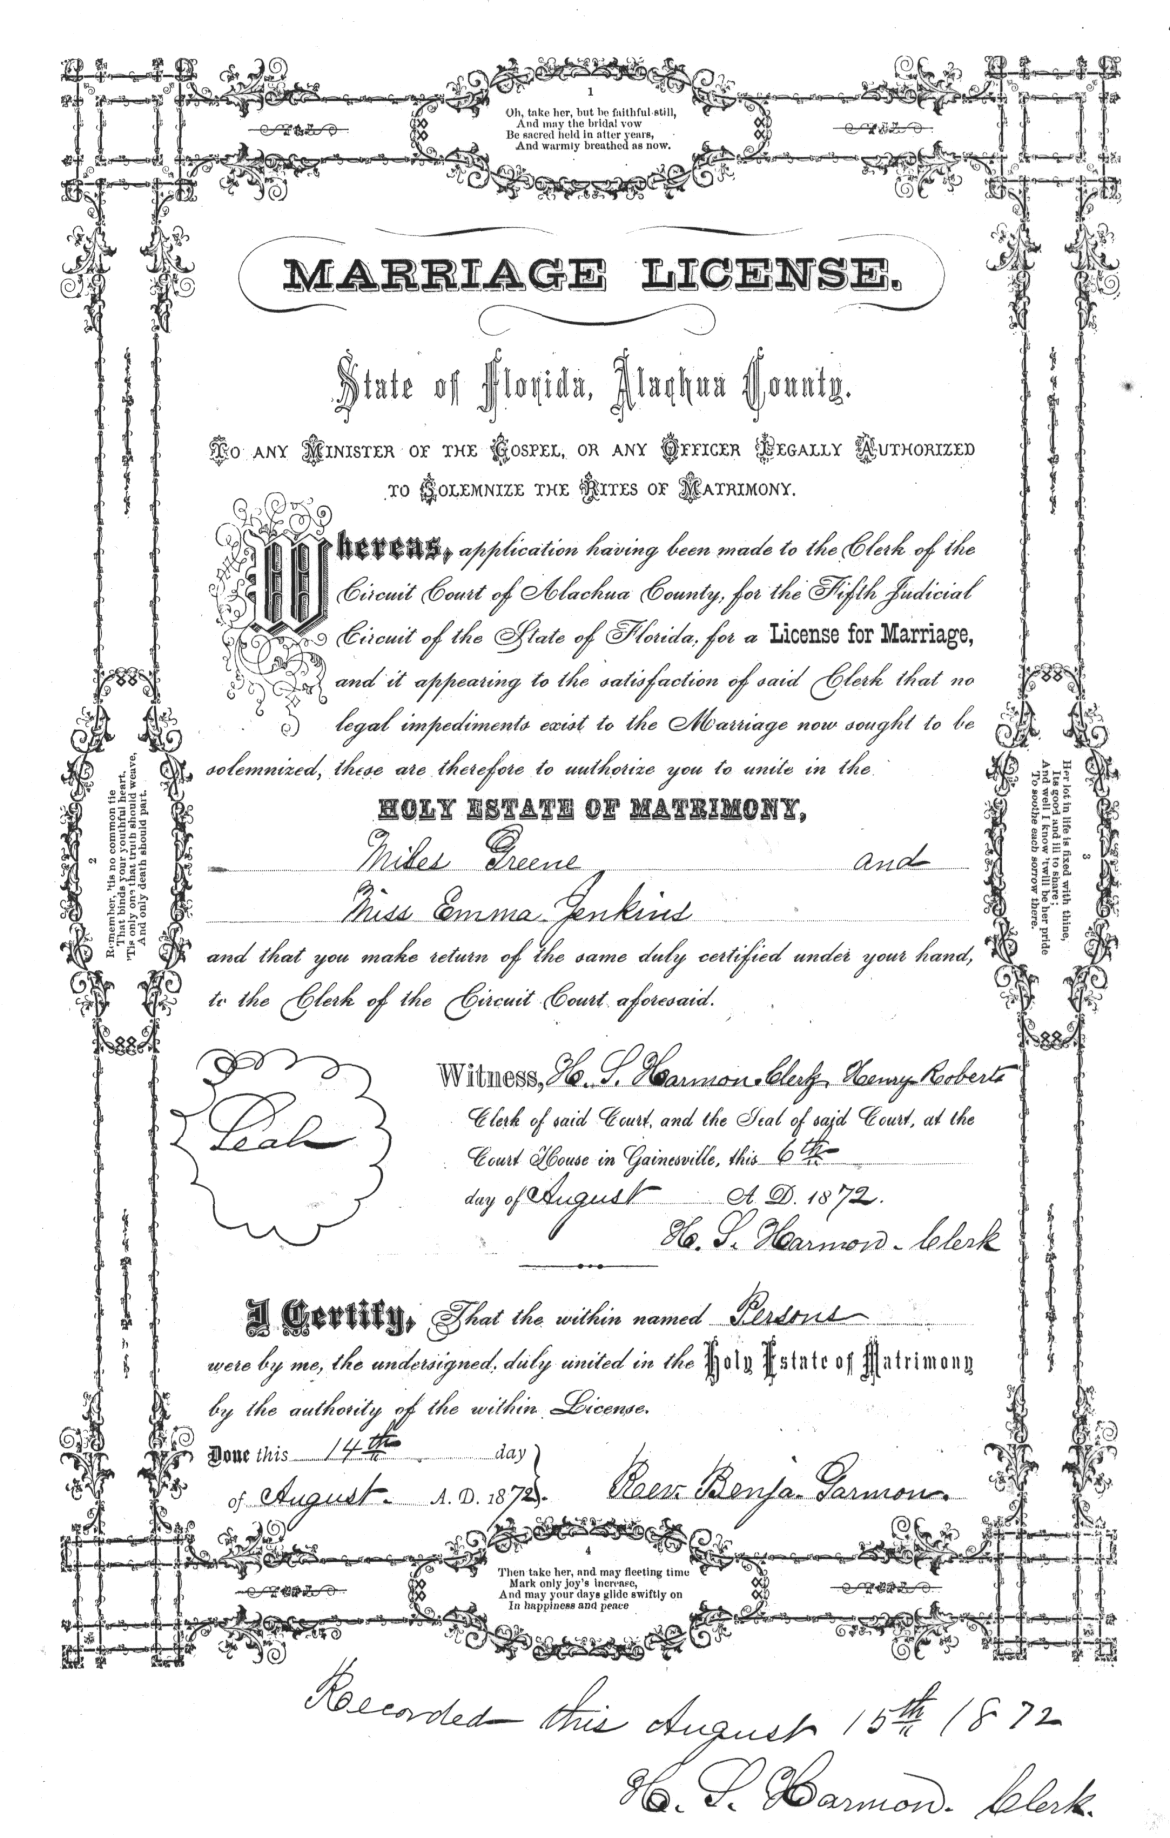 1
Oh, take her, but be faithful still,
And may the bridal vow
Be sacred held in after years,
And warmly breathed as now.
MARRIAGE LICENSE.
State of Florida, Alachua County.
TO ANY MINISTER OF THE GOSPEL, OR ANY OFFICER LEGALLY AUTHORIZED
TO SOLEMNIZE THE RITES OF MATRIMONY.
Whereas, application having been made to the Clerk of the
Circuit Court of Alachua County, for the Fifth Judicial
Circuit of the State of Florida, for a License for Marriage,
and it appearing to the satisfaction of said Clerk that no
legal impediments exist to the Marriage now sought to be
solemnized, these are therefore to authorize you to unite in the
HOLY ESTATE OF MATRIMONY,
Miles Greene and
Miss Emma Jenkins
and that you make return of the same duly certified under your hand,
to the Clerk of the Circuit Court aforesaid.
2
Remember, 'tis no common tie
That binds your youthful heart,
'Tis only one that truth should weave,
And only death should part.
3
Her lot in life is fixed with thine,
Its good and ill to share;
And well I know 'twill be her pride
To soothe each sorrow there.
Seal
Witness, H. S. Harmon Clerk, Henry Roberts
Clerk of said Court, and the Seal of said Court, at the
Court House in Gainesville, this 6th
day of August A. D. 1872.
H. S. Harmon. Clerk
I Certify, That the within named Persons
were by me, the undersigned, duly united in the Holy Estate of Matrimony
by the authority of the within License.
Done this 14th day
of August. A. D. 1872.
Rev. Benja. Garmon.
4
Then take her, and may fleeting time
Mark only joy's increase,
And may your days glide swiftly on
In happiness and peace
Recorded this August 15th 1872
H. S. Harmon. Clerk.